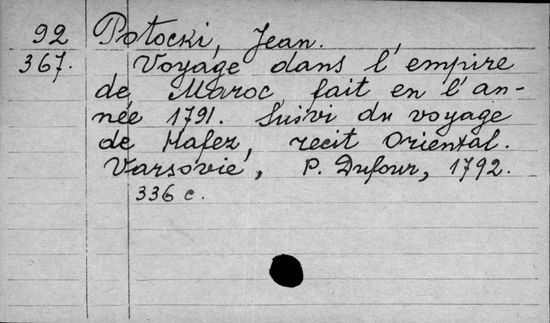 92 Potocki, Jean.
367. Voyage dans l'empire
de Maroc fait en l'an-
née 1791. Suivi du voyage
de Hafez, recit Oriental.
Varsovie, P. Dufour, 1792.
336 c.